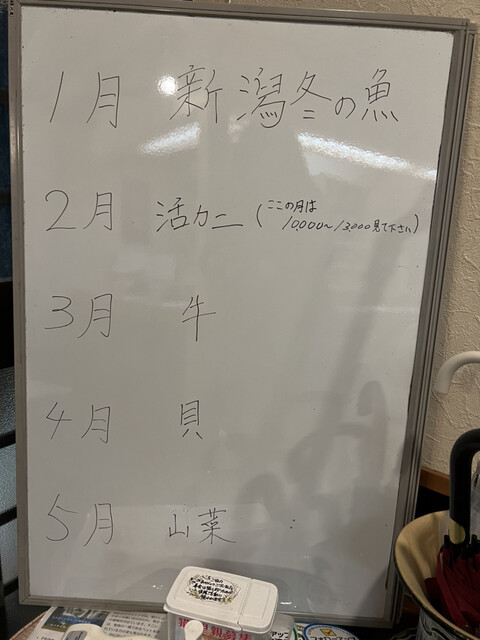 1月 新潟冬の魚
2月 活カニ (ここの月は
10,000〜13,000見て下さい)
3月 牛
4月 貝
5月 山菜